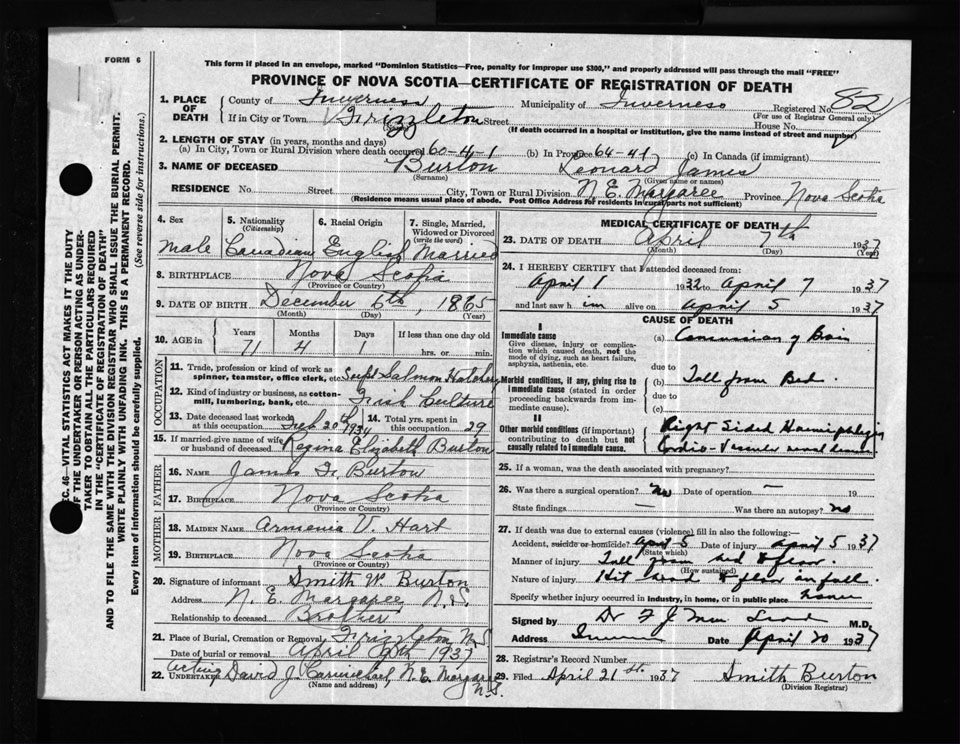 FORM 6
This form if placed in an envelope, marked "Dominion Statistics—Free, penalty for improper use $300," and properly addressed will pass through the mail "FREE"
PROVINCE OF NOVA SCOTIA—CERTIFICATE OF REGISTRATION OF DEATH
1. PLACE OF DEATH
County of Inverness Municipality of Inverness Registered No. 82
(For use of Registrar General only)
If in City or Town Frizzleton Street House No.
(If death occurred in a hospital or institution, give the name instead of street and number)
2. LENGTH OF STAY (in years, months and days)
(a) In City, Town or Rural Division where death occurred 60-4-1 (b) In Province 64-4-1 (c) In Canada (if immigrant)
3. NAME OF DECEASED Burton Leonard James
(Surname) (Given name or names)
RESIDENCE No. Street City, Town or Rural Division N. E. Margaree Province Nova Scotia
(Residence means usual place of abode. Post Office Address for residents in rural parts not sufficient)
4. Sex 5. Nationality (Citizenship) 6. Racial Origin 7. Single, Married, Widowed or Divorced (write the word)
male Canadian English Married
8. BIRTHPLACE Nova Scotia
(Province or Country)
9. DATE OF BIRTH December 6th, 1865
(Month) (Day) (Year)
10. AGE in Years Months Days If less than one day old
71 4 1 hrs. or min.
OCCUPATION
11. Trade, profession or kind of work as spinner, teamster, office clerk, etc. Supt Salmon Hatchery
12. Kind of industry or business, as cotton-mill, lumbering, bank, etc. Fish Culture
13. Date deceased last worked at this occupation 1934 14. Total yrs. spent in this occupation 29
15. If married-give name of wife or husband of deceased Regina Elizabeth Burton
FATHER
16. NAME James Burton
17. BIRTHPLACE Nova Scotia
(Province or Country)
MOTHER
18. MAIDEN NAME Armenia V. Hart
19. BIRTHPLACE Nova Scotia
(Province or Country)
20. Signature of informant Smith W. Burton
Address N. E. Margaree N.S.
Relationship to deceased Brother
21. Place of Burial, Cremation or Removal Frizzleton N.S.
Date of burial or removal April 1937
Acting
22. UNDERTAKER David J. Carmichael, N. E. Margaree N.S.
(Name and address)
MEDICAL CERTIFICATE OF DEATH
23. DATE OF DEATH April 7th 1937
(Month) (Day) (Year)
24. I HEREBY CERTIFY that I attended deceased from:
April 1 1932 to April 7 1937
and last saw him alive on April 5 1937
CAUSE OF DEATH
I
Immediate cause
Give disease, injury or complication which caused death, not the mode of dying, such as heart failure, asphyxia, asthenia, etc.
(a) Concussion of Brain
due to
Morbid conditions, if any, giving rise to immediate cause (stated in order proceeding backwards from immediate cause).
(b) Fall from Bed.
due to
(c)
II
Other morbid conditions (if important) contributing to death but not causally related to immediate cause.
Right Sided Haemiphlegia
Cardio-Vascular renal disease
25. If a woman, was the death associated with pregnancy?
26. Was there a surgical operation? No Date of operation — 19
State findings — Was there an autopsy? no
27. If death was due to external causes (violence) fill in also the following:—
Accident, suicide or homicide? April 5 Date of injury April 5 1937
(State which)
Manner of injury Fall from bed to floor
(How sustained)
Nature of injury Hit head floor in fall.
Specify whether injury occurred in industry, in home, or in public place home
Signed by Dr M.D.
Address Date April 20 1937
28. Registrar's Record Number
29. Filed April 21st. 1937 Smith Burton
(Division Registrar)
SEC. 46—VITAL STATISTICS ACT MAKES IT THE DUTY
OF THE UNDERTAKER OR PERSON ACTING AS UNDER-
TAKER TO OBTAIN ALL THE PARTICULARS REQUIRED
IN THE "CERTIFICATE OF REGISTRATION OF DEATH"
AND TO FILE THE SAME WITH THE DIVISION REGISTRAR WHO SHALL ISSUE THE BURIAL PERMIT.
WRITE PLAINLY WITH UNFADING INK. THIS IS A PERMANENT RECORD.
Every item of information should be carefully supplied. (See reverse side for instructions.)